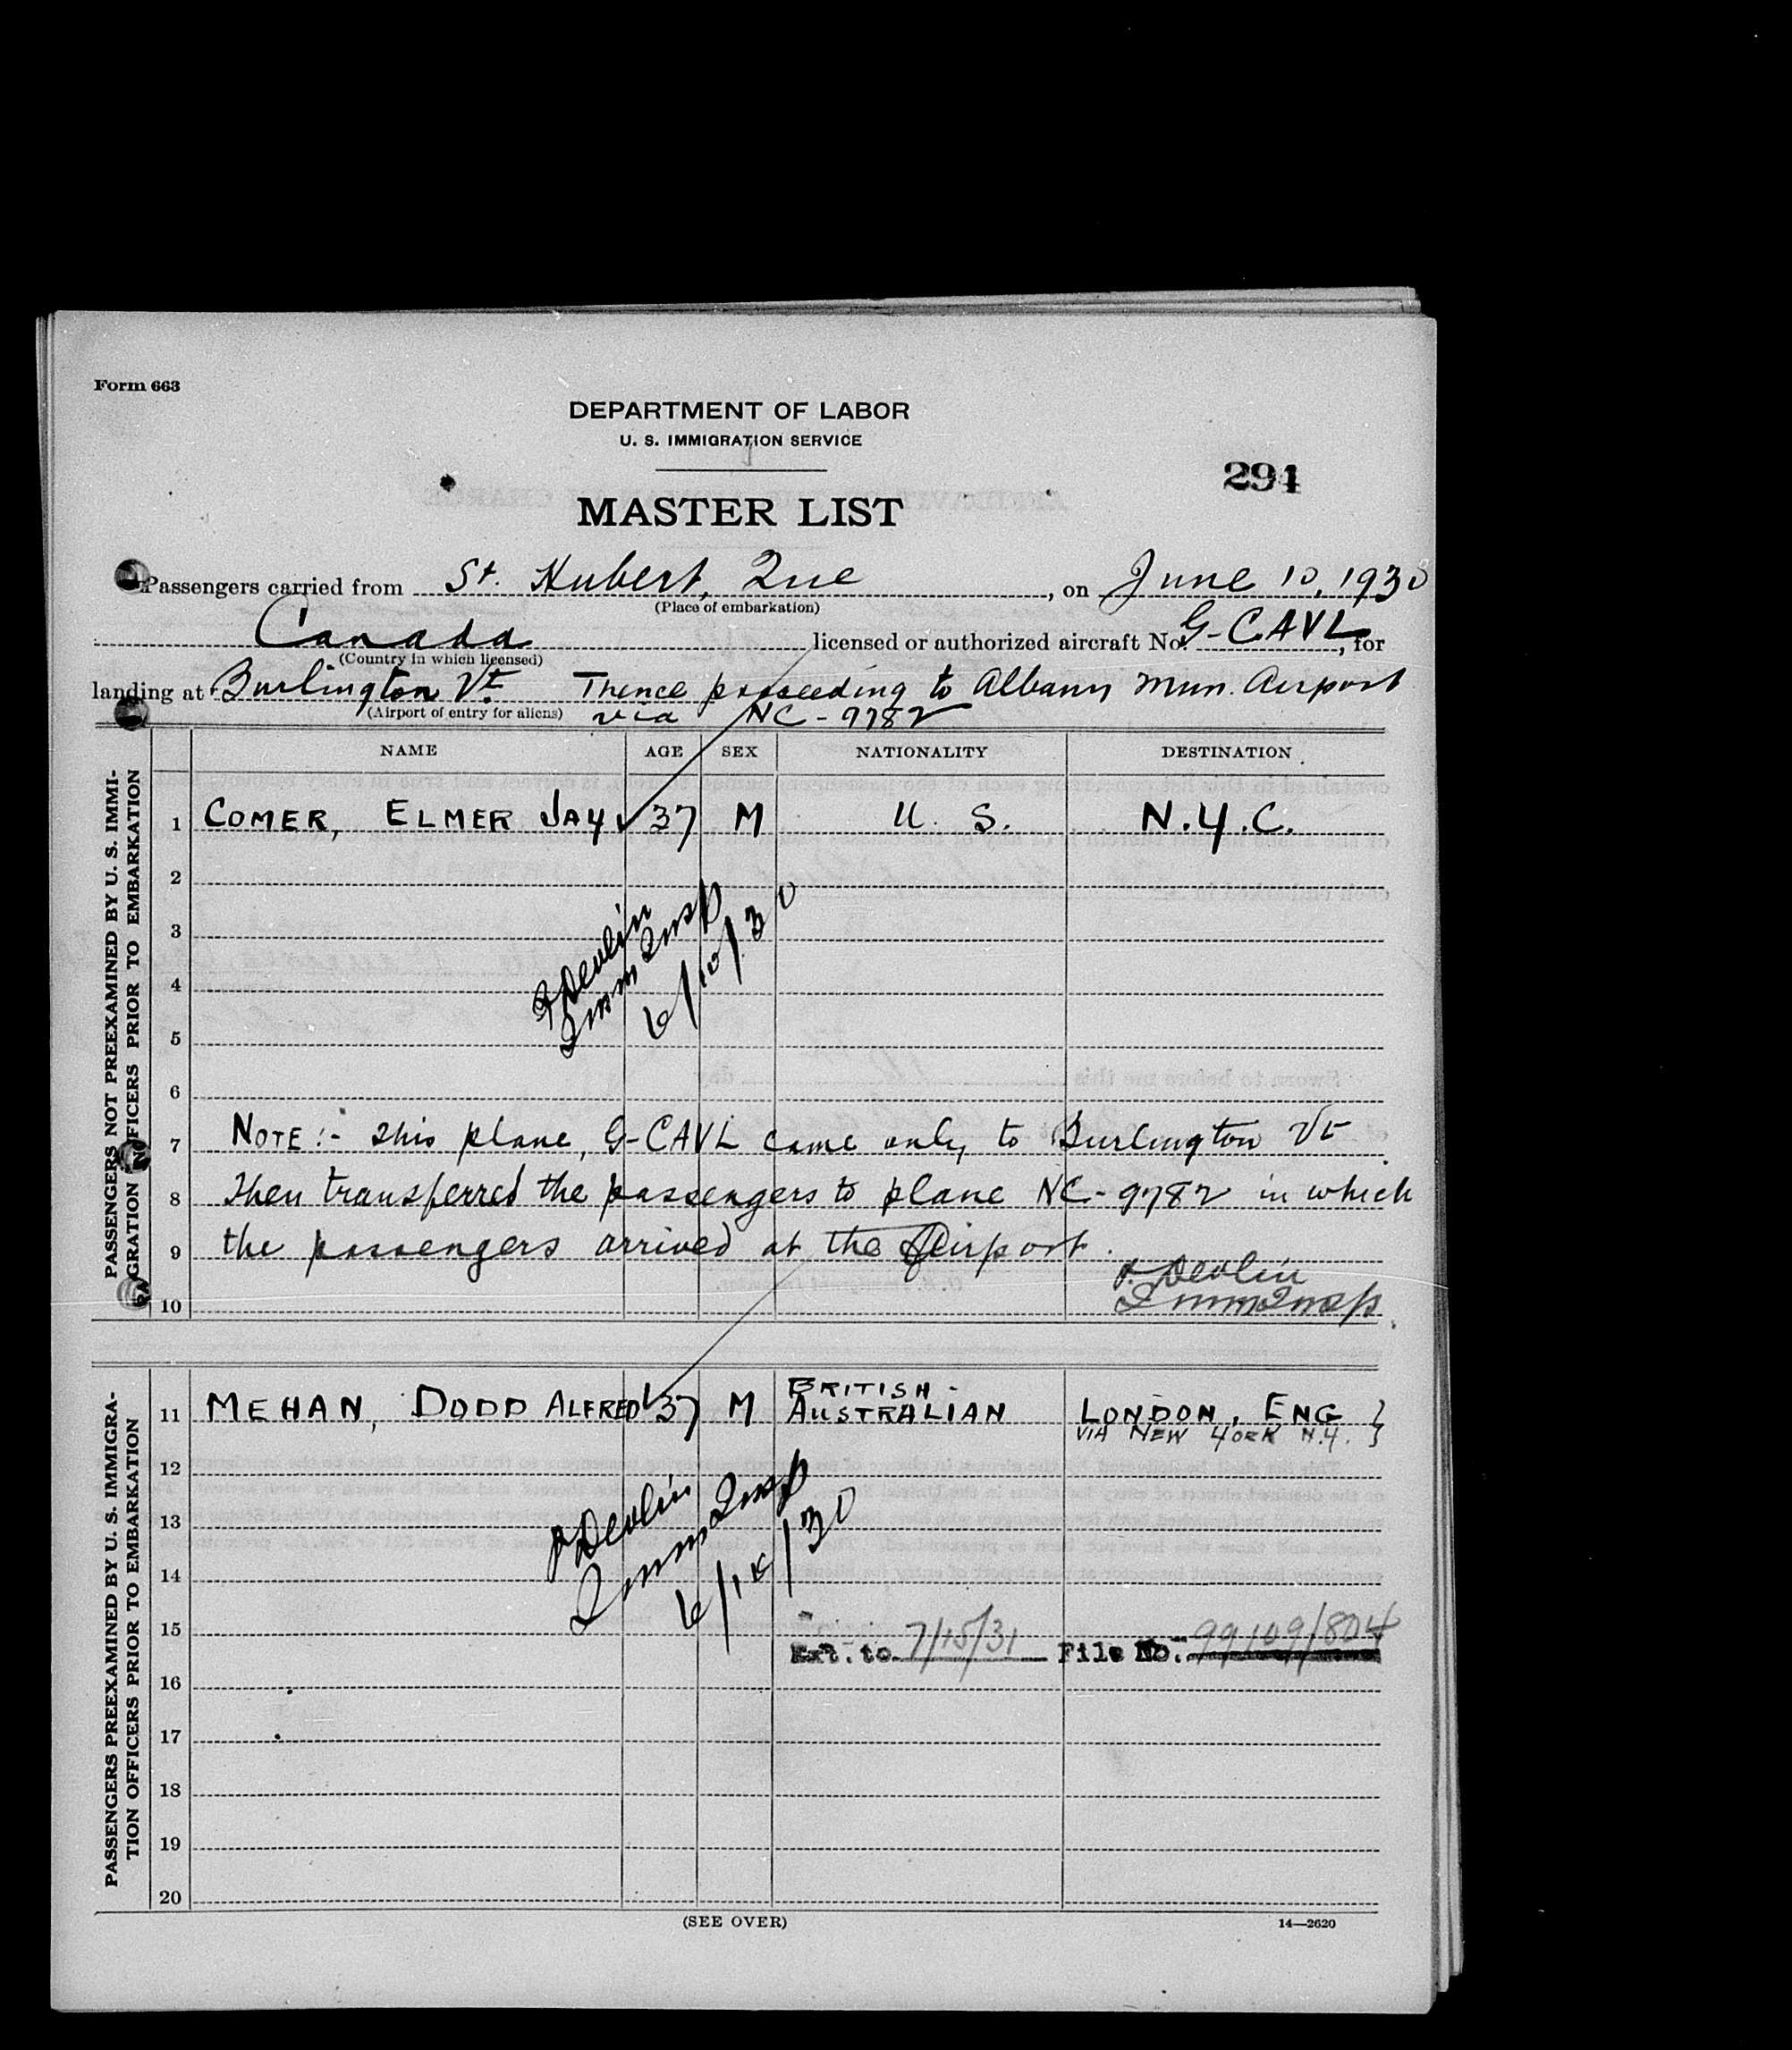 Form 663
DEPARTMENT OF LABOR
U. S. IMMIGRATION SERVICE
291
MASTER LIST
Passengers carried from St. Hubert, Que, on June 10, 1930
(Place of embarkation)
Canada licensed or authorized aircraft No. G-CAVL, for
(Country in which licensed)
landing at Burlington Vt. Thence proceeding to Albany Mun. Airport
(Airport of entry for aliens) via NC-9782
NAME AGE SEX NATIONALITY DESTINATION
PASSENGERS NOT PREEXAMINED BY U. S. IMMI-
GRATION OFFICERS PRIOR TO EMBARKATION
1 COMER, ELMER JAY 37 M U. S. N.Y.C.
2
3
4
5
6
Devlin
Imm Insp
6/10/30
7 NOTE:- This plane, G-CAVL came only to Burlington Vt
8 then transferred the passengers to plane NC-9782 in which
9 the passengers arrived at the Airport.
Devlin
10 Imm Insp
PASSENGERS PREEXAMINED BY U. S. IMMIGRA-
TION OFFICERS PRIOR TO EMBARKATION
BRITISH-
11 MEHAN, DODD ALFRED 37 M AUSTRALIAN LONDON, ENG
VIA NEW YORK N.Y.
12
13
14
Devlin
Imm Insp
6/10/30
15
Ext. to 7/15/31 File No. 99109/804
16
17
18
19
20
(SEE OVER)
14—2620